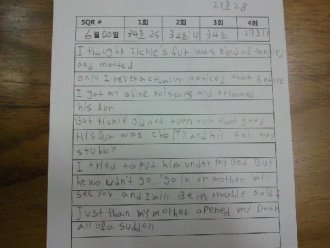 21초28
SQR # 1회 2회 3회 4회
6월 20일 34초
I thought Tickle's fur was kind of
and matted
only I never actually noticed that before
I got my shine scissors and trimmed
his fur
But tickle did not turn out that good
His fur was choppy and his tail was
stubby
I tried to put him under my Bed. But
he wouldn't go go in or mother will
see you and I will Be in trouble said I
Just then my mother opened my Door
all of a sudden